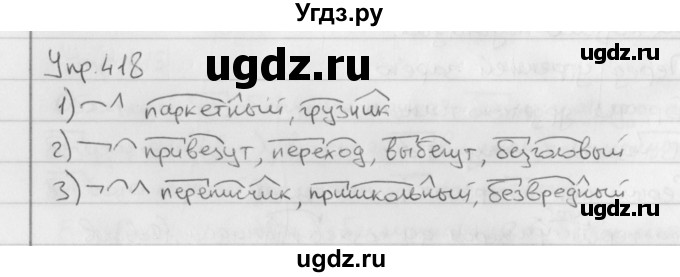 Угдз.ру
ugdz.ru
Упр.418
1) ¬^ паркетный, грузчик
2) ¬⌒ привезут, переход, выбегут, безголовый
3) ¬⌒^ переписчик, пришкольный, безвредный
ugdz.ru
ugdz.ru
ugdz.ru
Угдз.ру